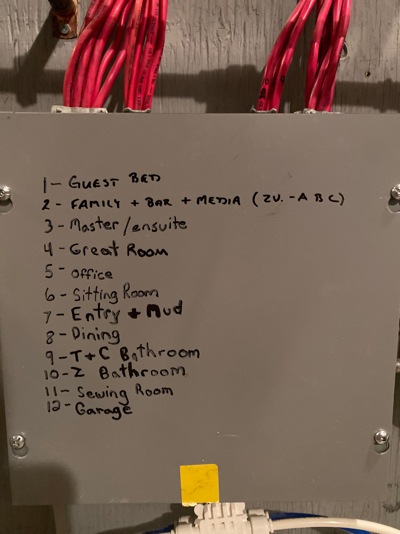 1 - GUEST BED
2 - FAMILY + BAR + MEDIA (ZV. - A B C)
3 - Master/ensuite
4 - Great Room
5 - Office
6 - Sitting Room
7 - Entry + Mud
8 - Dining
9 - T + C Bathroom
10 - Z Bathroom
11 - Sewing Room
12 - Garage